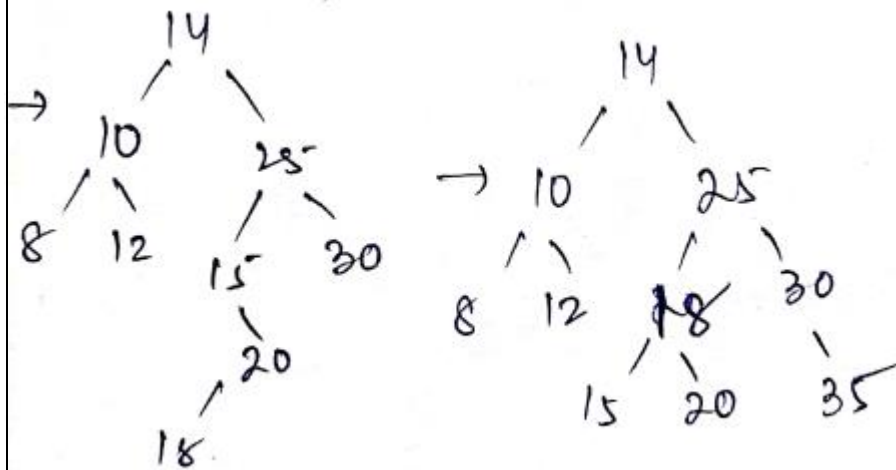 14
→ 10 25
8 12 15 30
20
18
14
→ 10 25
8 12 18 30
15 20 35